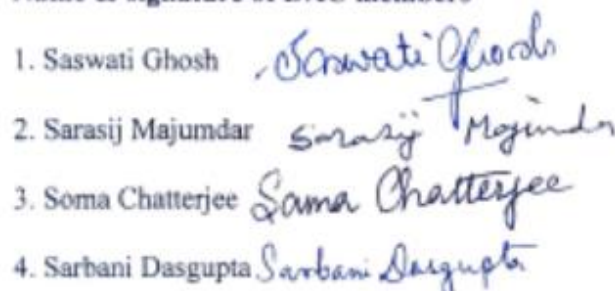 1. Saswati Ghosh Saswati Ghosh
2. Sarasij Majumdar Sarasij Majumdar
3. Soma Chatterjee Soma Chatterjee
4. Sarbani Dasgupta Sarbani Dasgupta